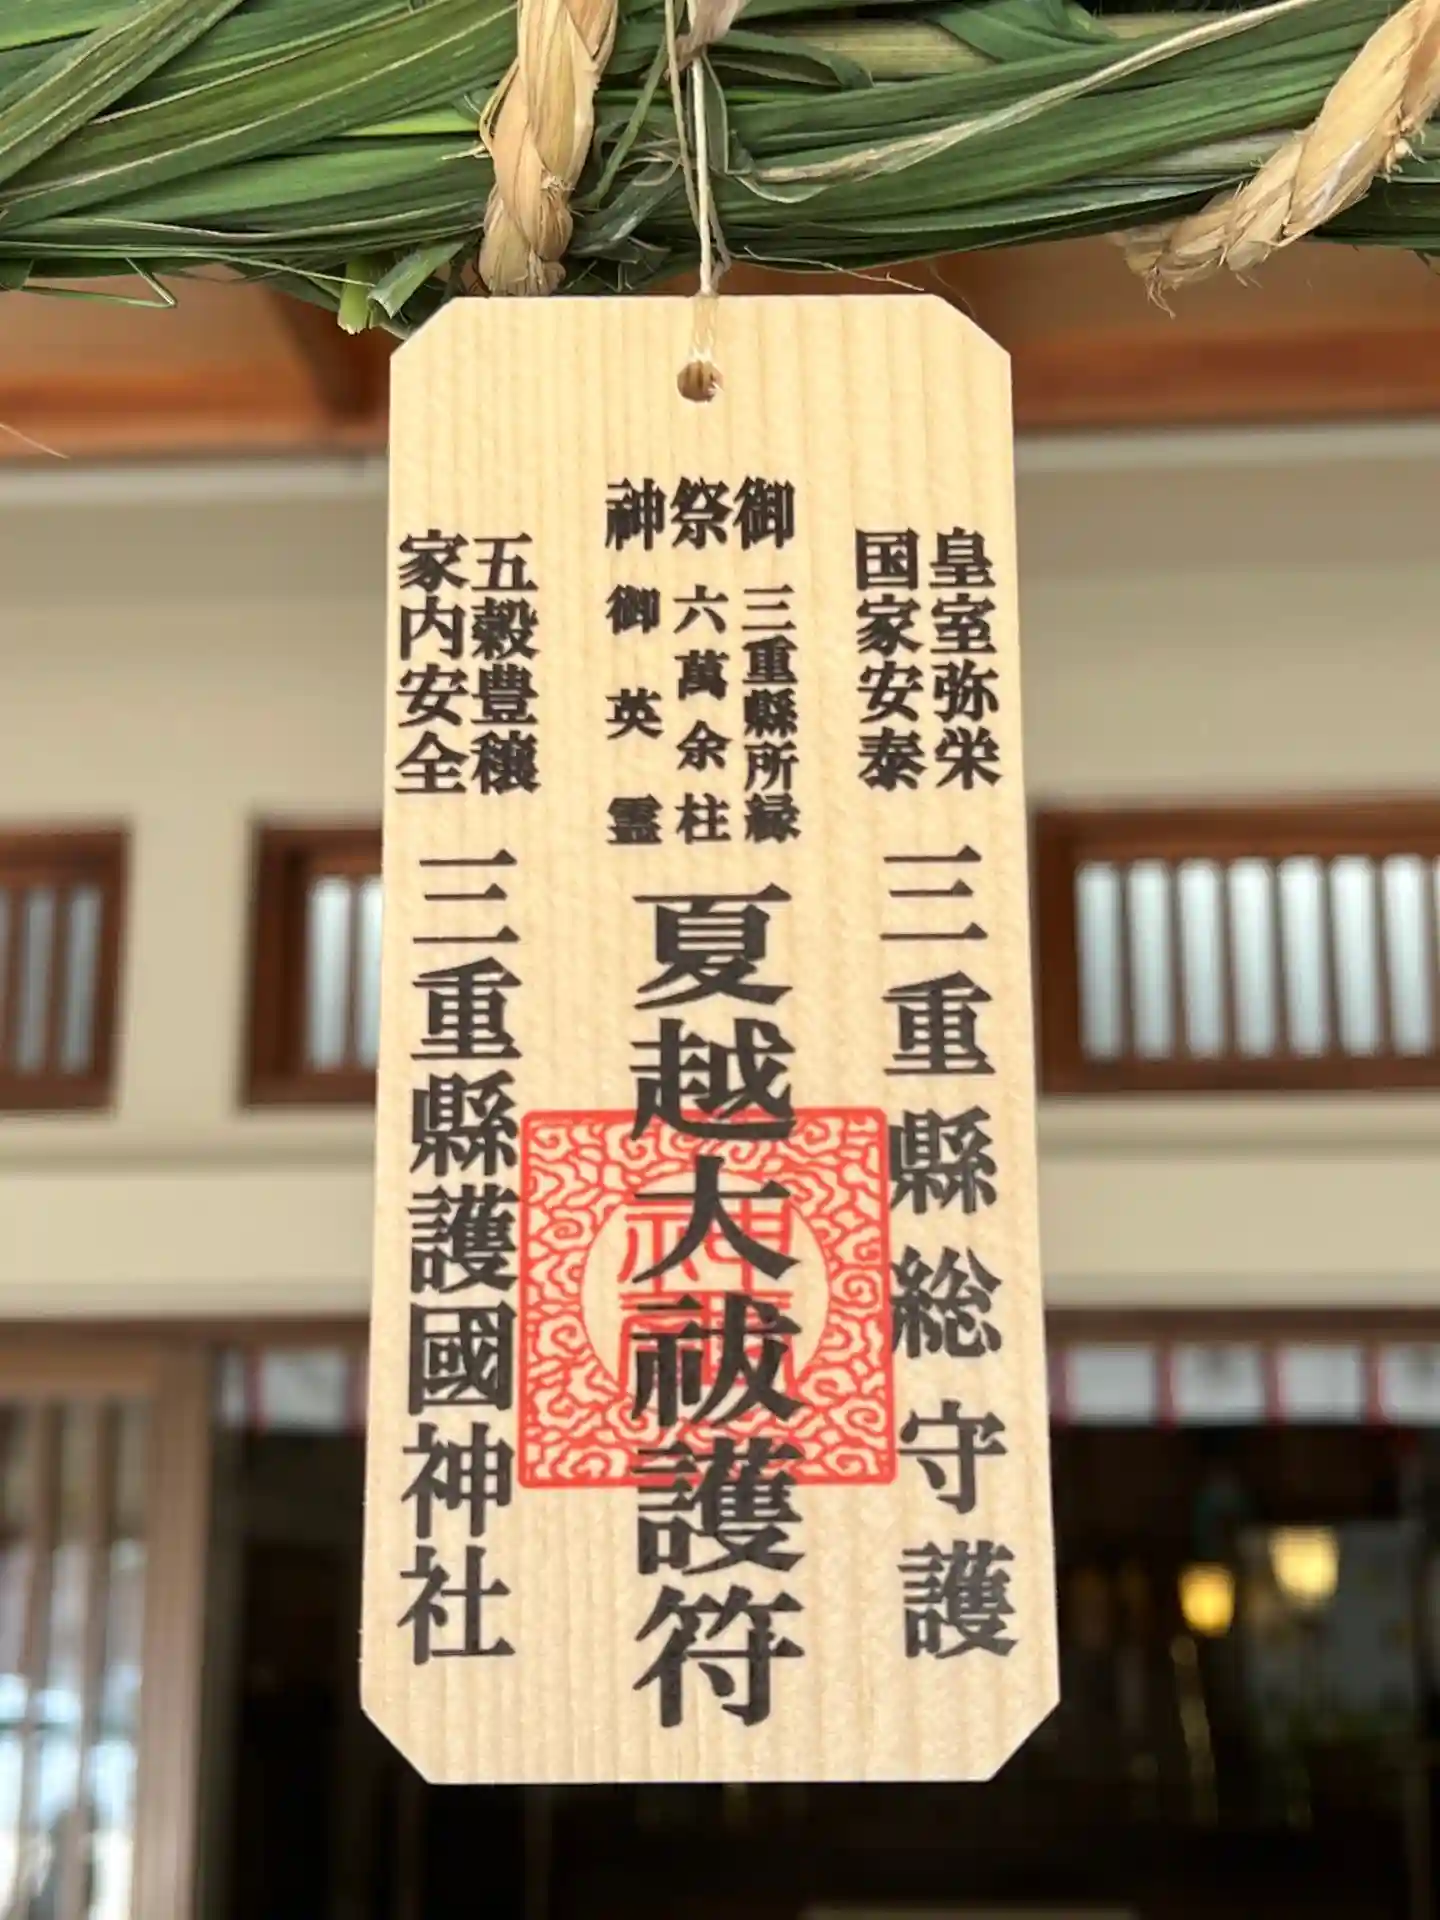 皇室弥栄
国家安泰
三重縣総守護
御祭神
三重縣所縁
六萬余柱
御英霊
夏越大祓護符
五穀豊穣
家内安全
三重縣護國神社